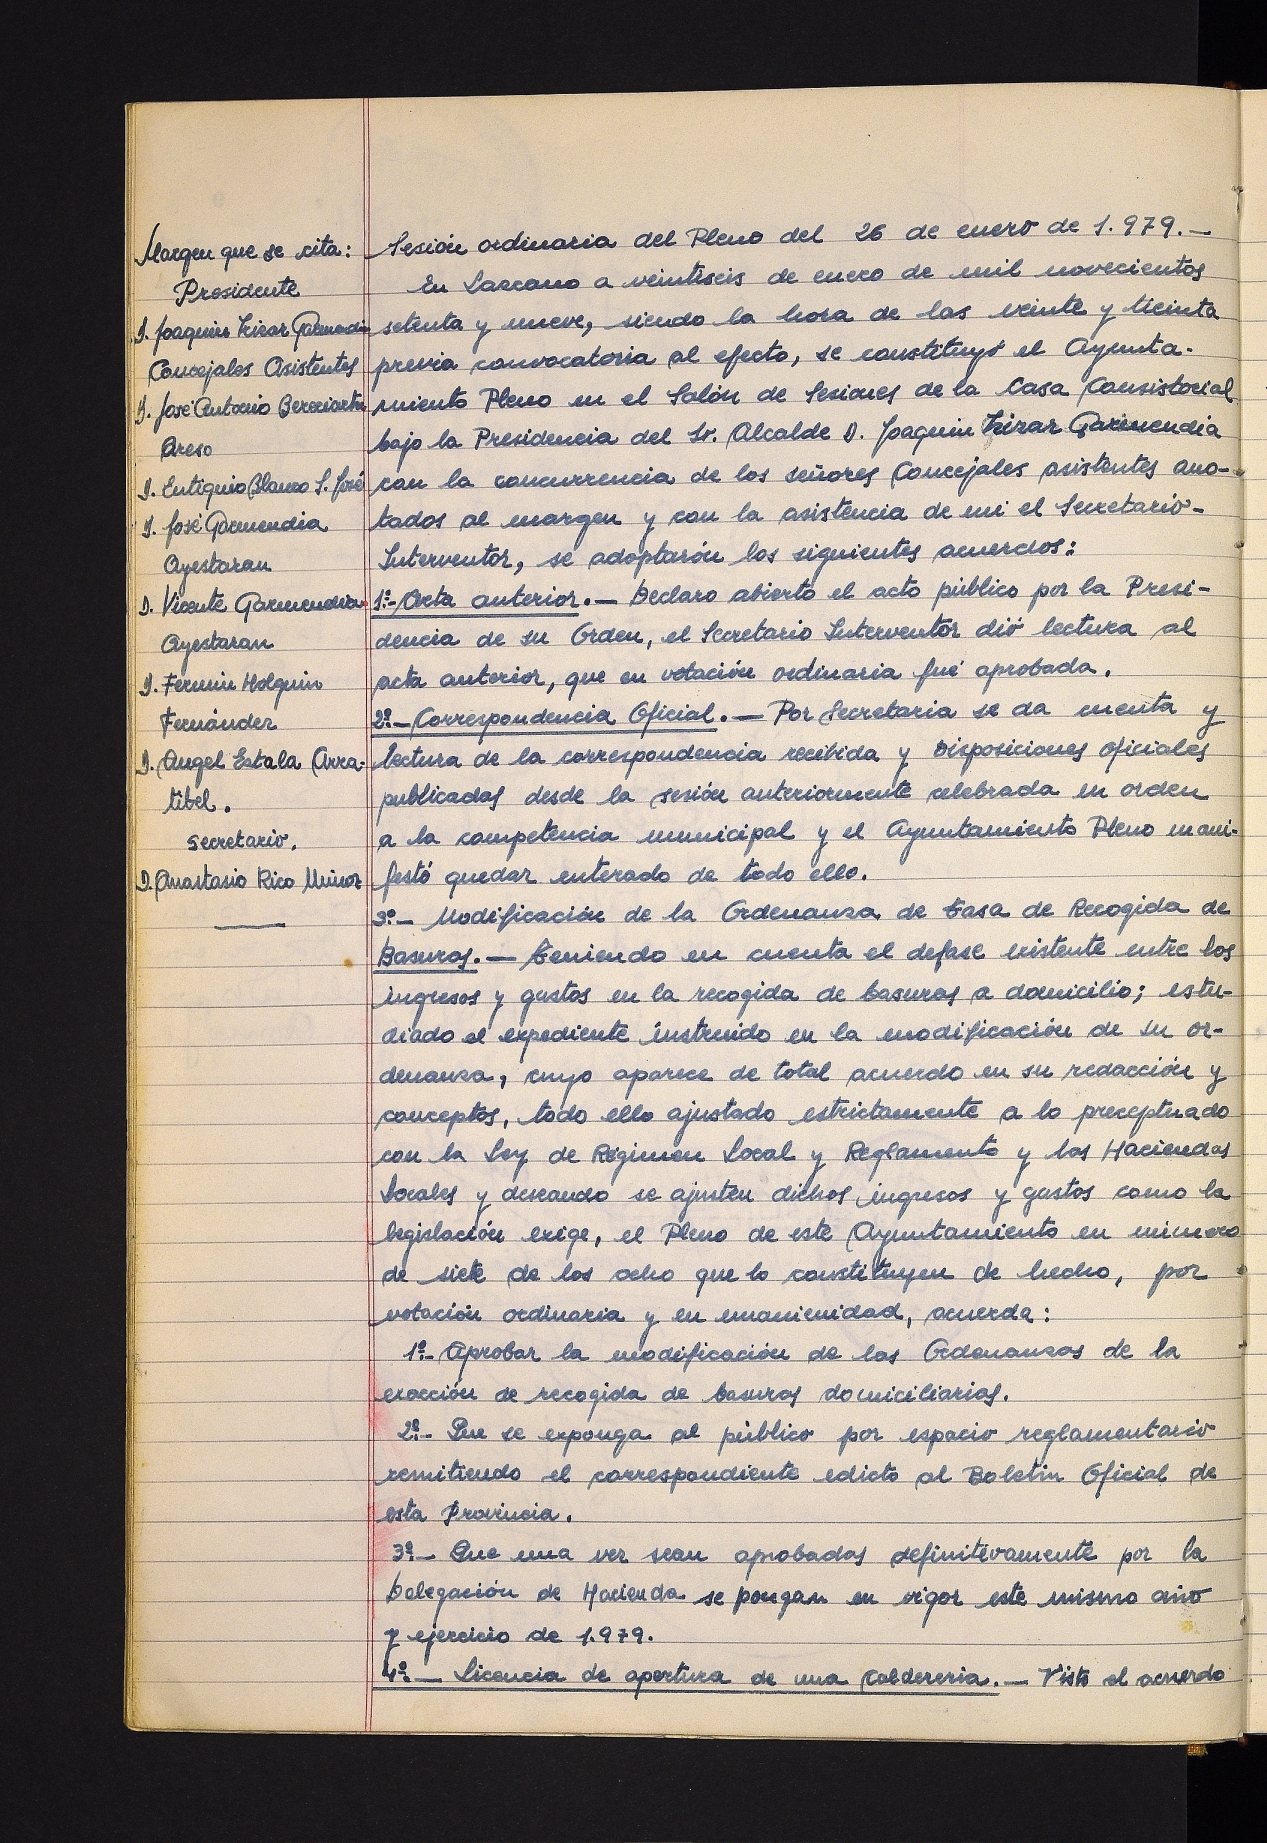 Margen que se cita:
Presidente
D. Joaquin Irizar Garmendia
Concejales Asistentes
D. José Antonio Bereciartu
Areso
D. Eutiquio Blanco S. José
D. José Garmendia
Ayestaran
D. Vicente Garmendia
Ayestaran
D. Fermin Holguin
Fernánder
D. Angel Estala Arra-
tibel.
secretario.
D. Anastasio Rico Muñoz
Sesión ordinaria del Pleno del 26 de enero de 1.979.—
En Lazcano a veintiseis de enero de mil novecientos
setenta y nueve, siendo la hora de las veinte y treinta
previa convocatoria al efecto, se constituyó el Ayunta-
miento Pleno en el Salón de Sesiones de la Casa Consistorial
bajo la Presidencia del Sr. Alcalde D. Joaquin Irizar Garmendia
con la concurrencia de los señores Concejales asistentes ano-
tados al margen y con la asistencia de mi el Secretario-
Interventor, se adoptarón los siguientes acuerdos:
1º.- Acta anterior.— Declaro abierto el acto público por la Presi-
dencia de su Orden, el Secretario Interventor dió lectura al
acta anterior, que en votación ordinaria fué aprobada.
2º.— Correspondencia Oficial.— Por Secretaria se da cuenta y
lectura de la correspondencia recibida y Disposiciones oficiales
publicadas desde la sesión anteriormente celebrada en orden
a la competencia municipal y el Ayuntamiento Pleno mani-
festó quedar enterado de todo ello.
3º.— Modificación de la Ordenanza de Tasa de Recogida de
Basuras.— Teniendo en cuenta el defase existente entre los
ingresos y gastos en la recogida de basuras a domicilio; estu-
diado el expediente instruido en la modificación de su or-
denanza, cuyo aparece de total acuerdo en su redacción y
conceptos, todo ello ajustado estrictamente a lo preceptuado
con la Ley de Régimen Local y Reglamento y las Haciendas
Locales y deseando se ajusten dichos ingresos y gastos como la
legislación exige, el Pleno de este Ayuntamiento en número
de siete de los ocho que lo constituyen de hecho, por
votación ordinaria y en unanimidad, acuerda:
1º.- Aprobar la modificación de las Ordenanzas de la
exacción de recogida de basuras domiciliarias.
2º.- Que se exponga al público por espacio reglamentario
remitiendo el correspondiente edicto al Boletin Oficial de
esta Provincia.
3º.— Que una vez sean aprobadas definitivamente por la
Delegación de Hacienda se pongan en vigor este mismo año
y ejercicio de 1.979.
4º.— Licencia de apertura de una Caldereria.— Visto el acuerdo